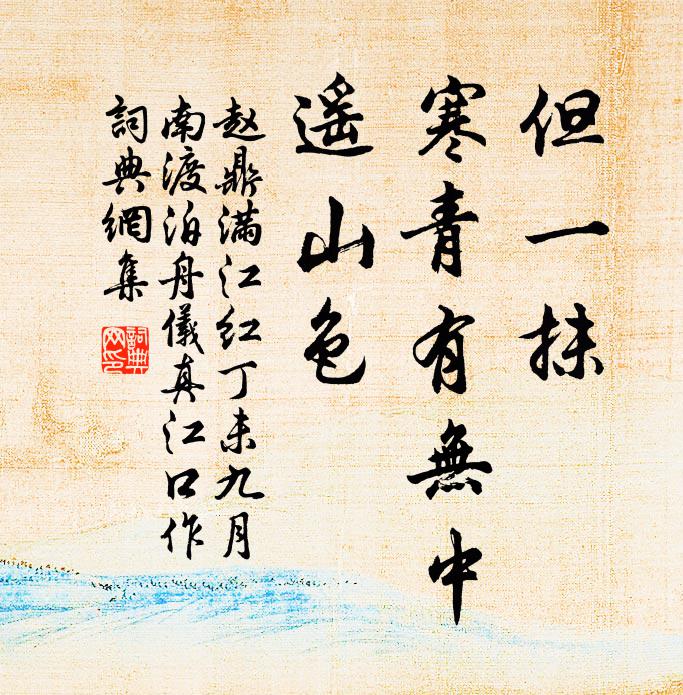 但一抹
寒青有無中
遥山色
赵鼎满江红丁未九月
南渡泊舟儀真江口作
詞典網集
詞典
网印